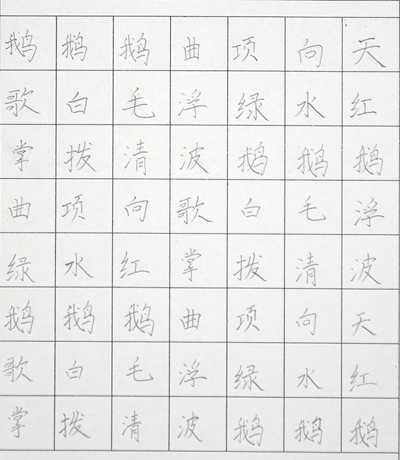 鹅鹅鹅曲项向天
歌白毛浮绿水红
掌拨清波鹅鹅鹅
曲项向歌白毛浮
绿水红掌拨清波
鹅鹅鹅曲项向天
歌白毛浮绿水红
掌拨清波鹅鹅鹅